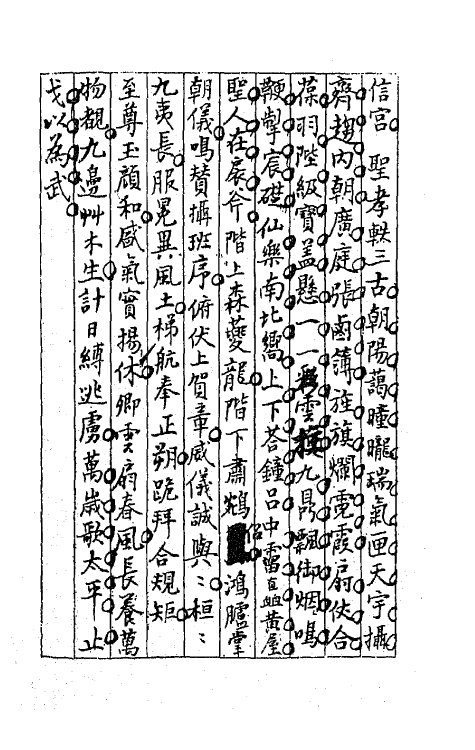 信宮　聖孝軼三古朝陽藹曈曨瑞氣匝天宇攝
齊趨内朝廣庭張鹵簿旌旗爛霓霞扇仗合
葆羽陛級寶盖懸一一彩雲撲九鼎飄御烟鳴
鞭掣宸礎仙樂南北嚮上下荅鐘吕中霤直黄屋
聖人在扆介階上森夔龍階下肅鵷侣鴻臚掌
朝儀鳴賛攝班序俯伏上賀章威儀誠與〻桓〻
九夷長服冕異風土梯航奉正朔跪拜合規矩
至尊玉顔和感氣實揚休卿雲扇春風長養萬
物覩九邊艸木生計日縛逃虜萬歳歌太平止
戈以為武